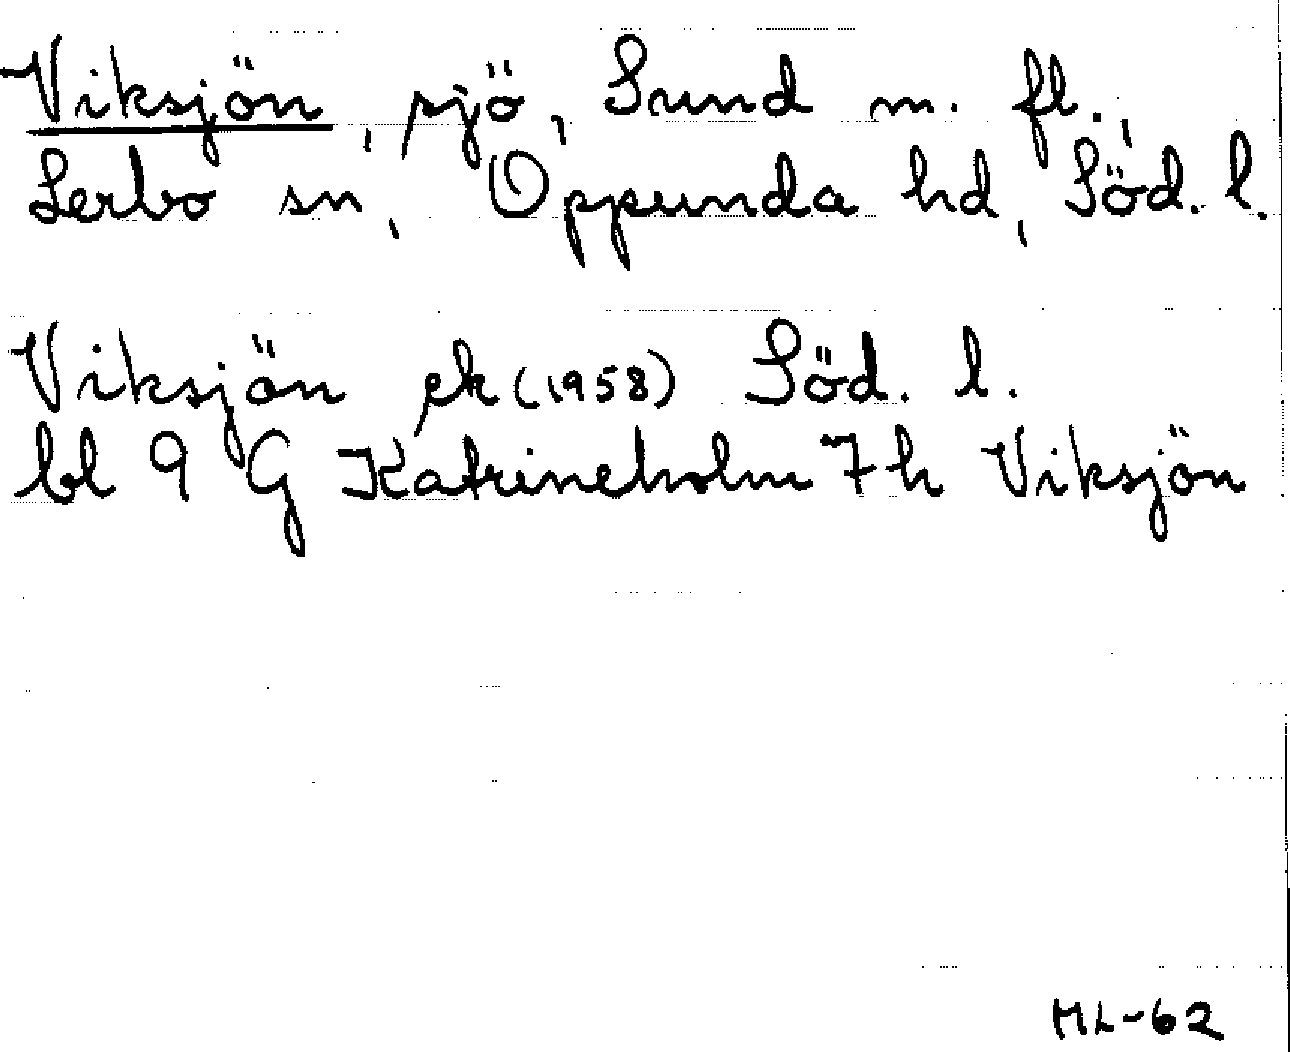 Viksjön, sjö, Sund m. fl.,
Lerbo sn, Oppunda hd, Söd. l.
Viksjön ek (1958) Söd. l.
bl 9 G Katrineholm 7 h Viksjön
ML-62